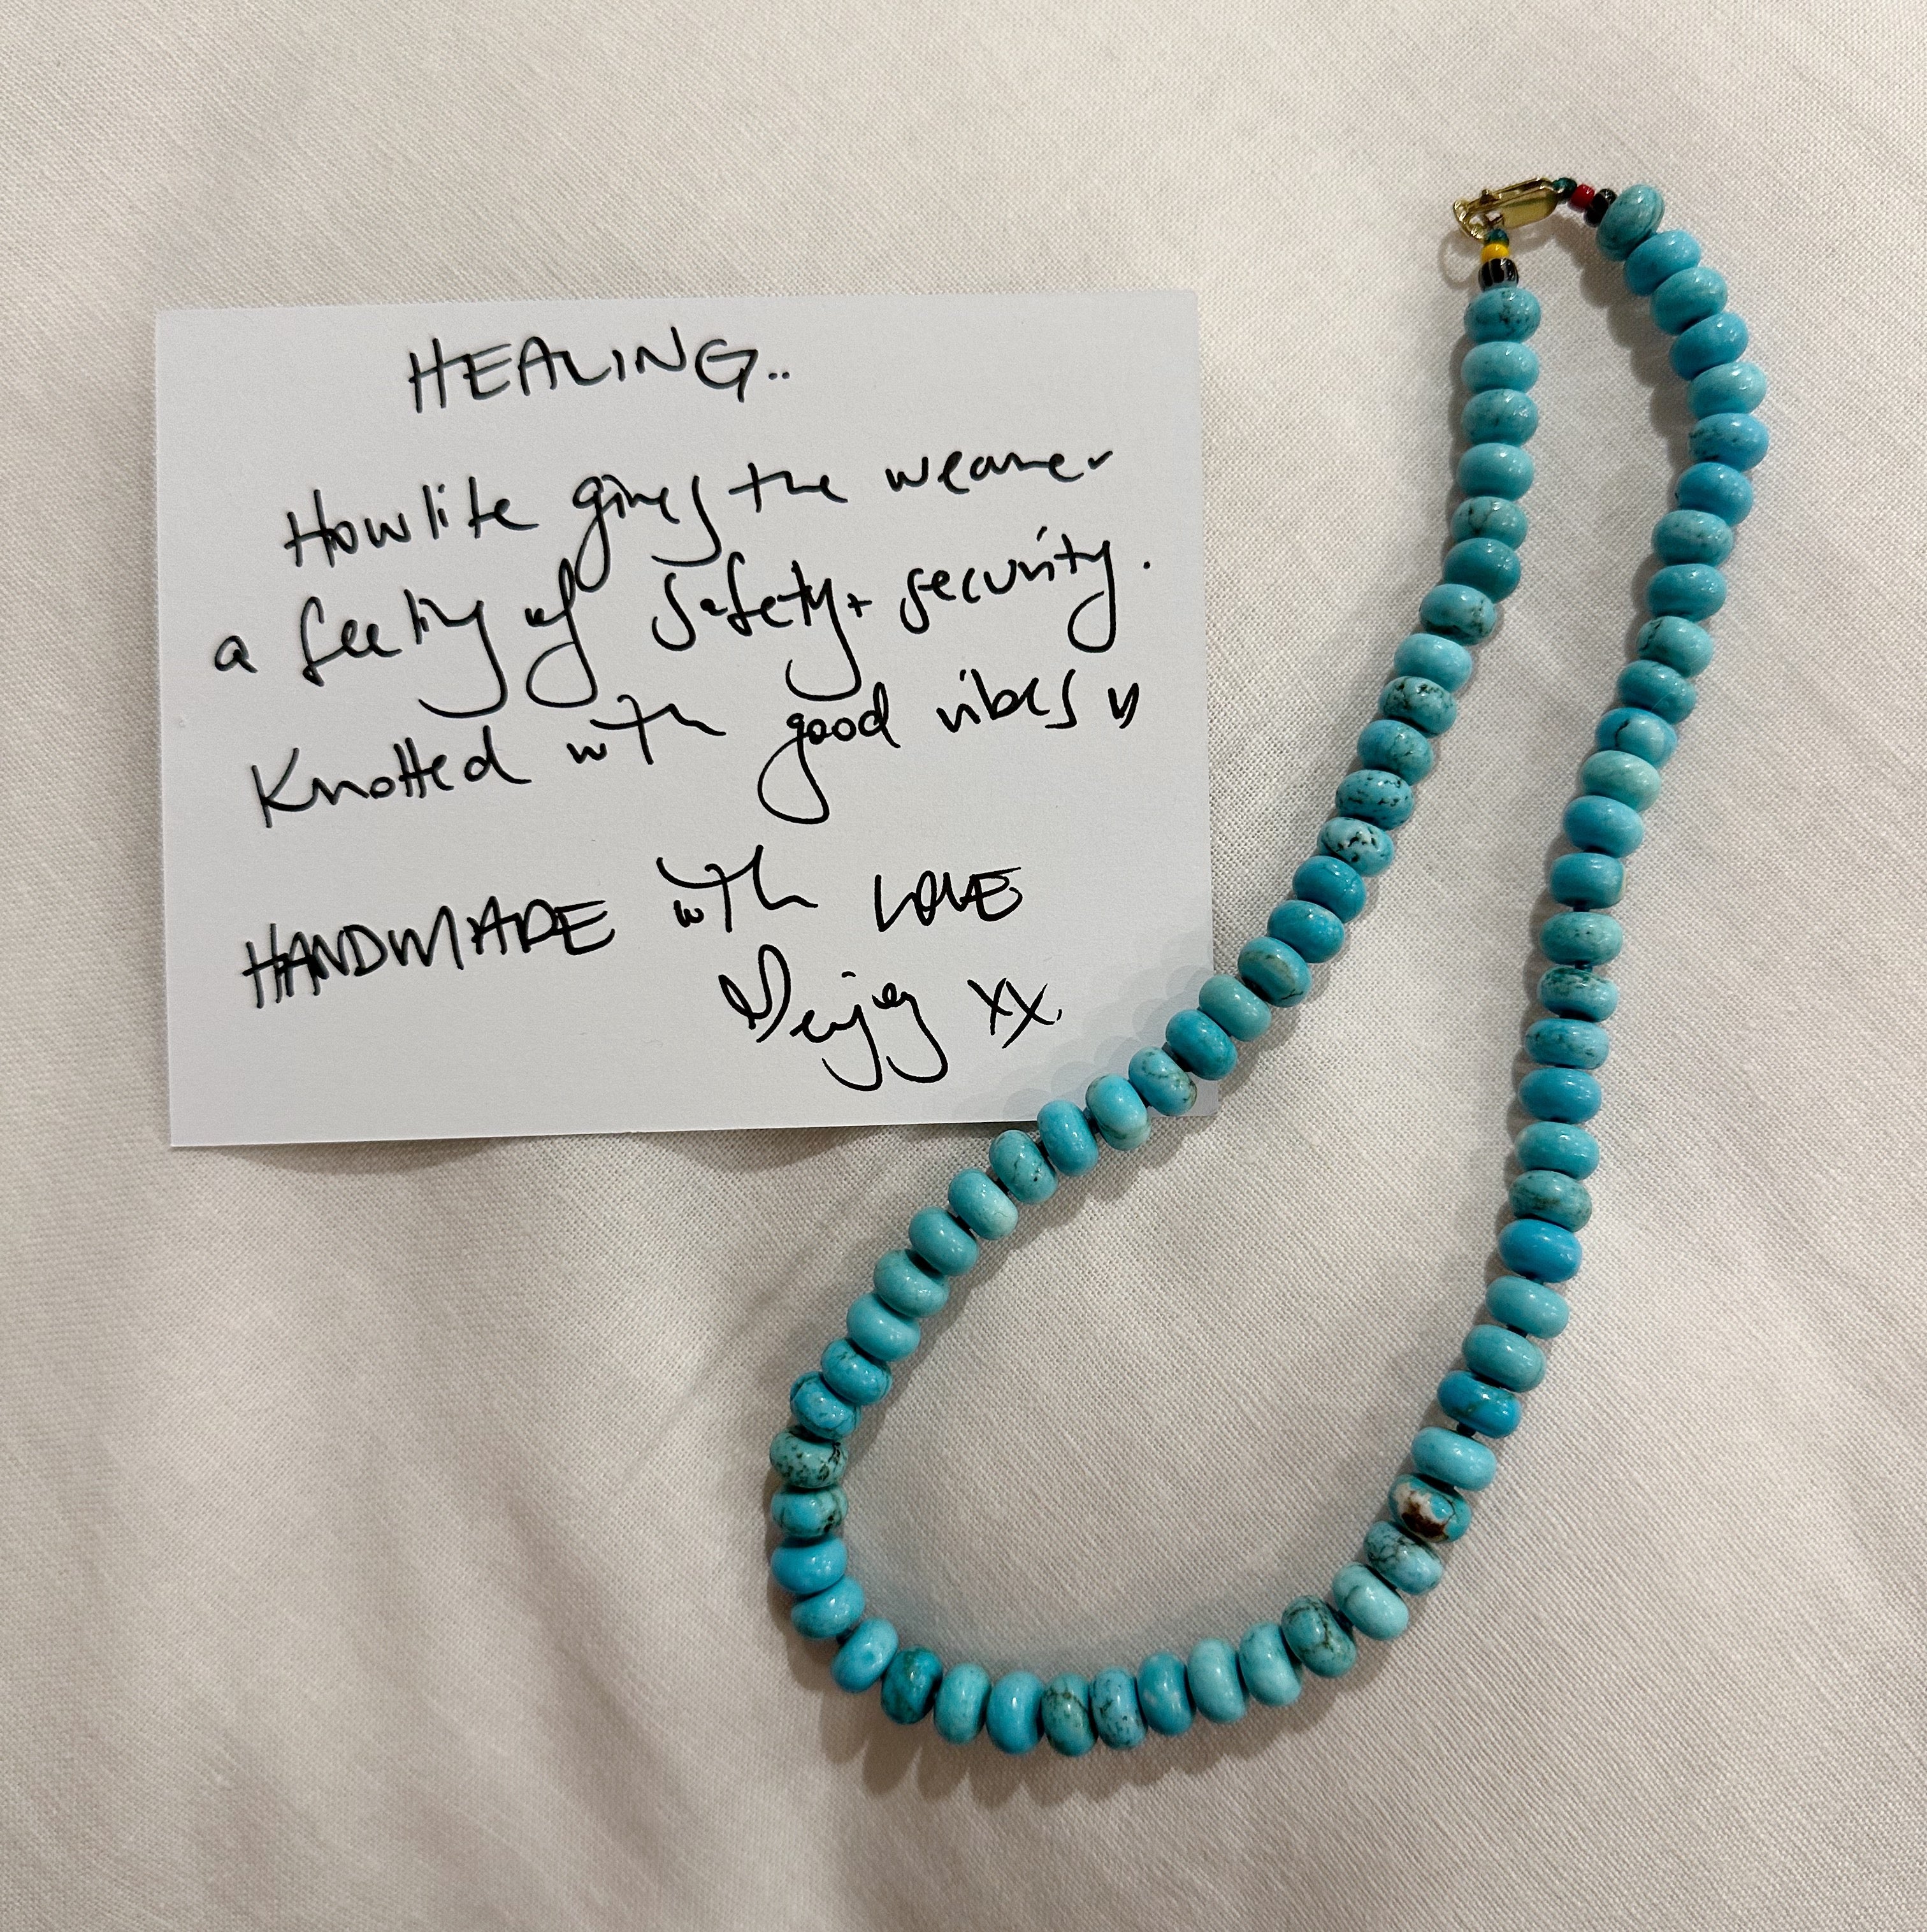 HEALING..
Howlite gives the wearer
a feeling of safety + security.
Knotted with good vibes
HANDMADE with LOVE
XX